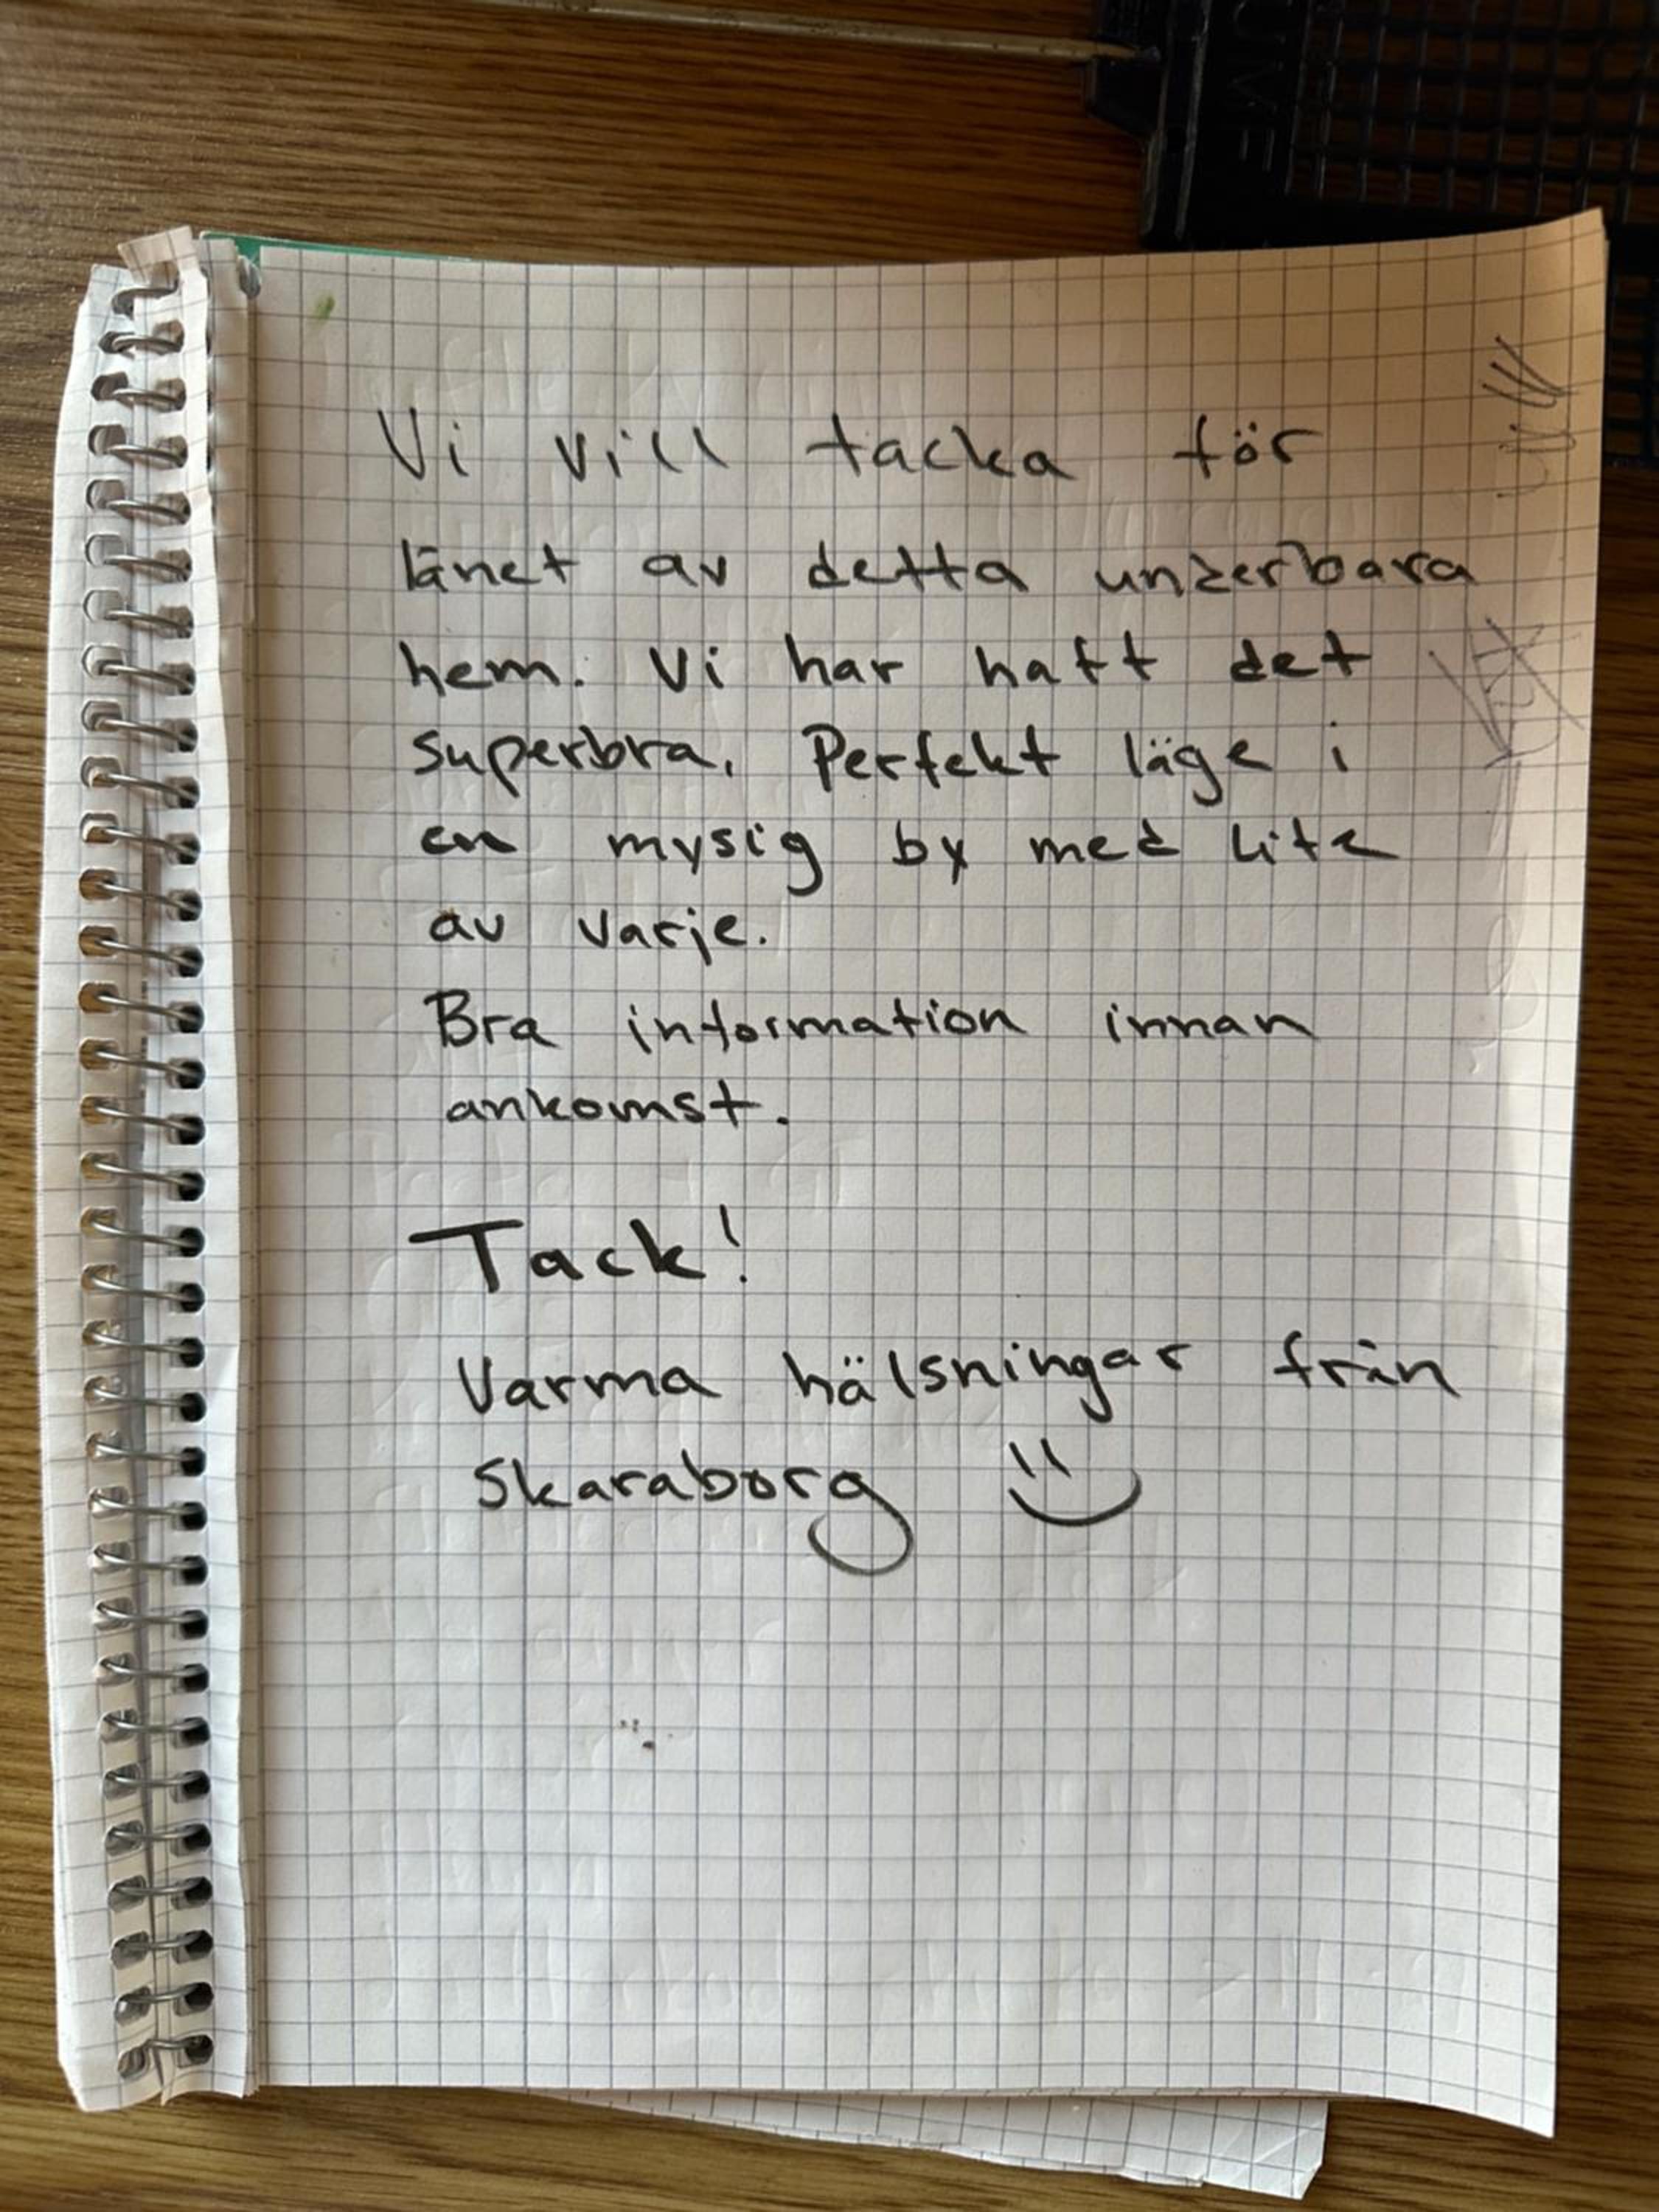 Vi vill tacka för
lånet av detta underbara
hem. Vi har haft det
superbra. Perfekt läge i
en mysig by med lite
av varje.
Bra information innan
ankomst.
Tack!
Varma hälsningar från
Skaraborg